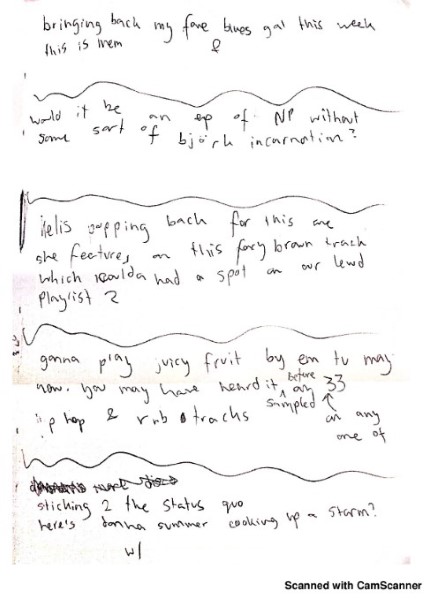 bringing back my fave blues gal this week
this is them &
would it be an ep of NP without
some sort of björk incarnation?
kelis popping back for this one
she features on this foxy brown track
which coulda had a spot on our lewd
playlist 2
gonna play juicy fruit by em tu may
now. you may have heard it before on 33
sampled on any
hip hop & rnb tracks
one of
sticking 2 the status quo
here's donna summer cooking up a storm?
w/
Scanned with CamScanner